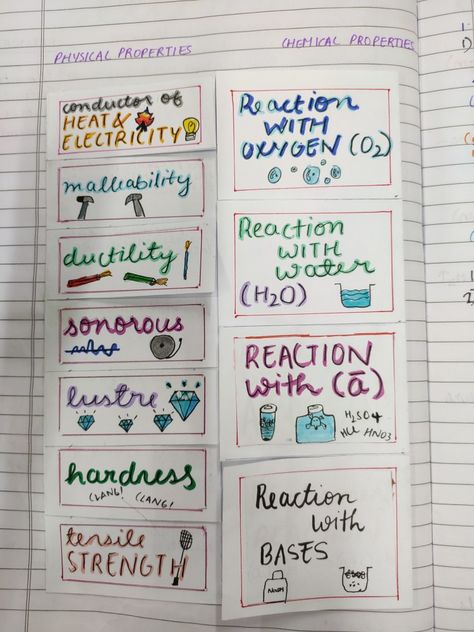 PHYSICAL PROPERTIES
CHEMICAL PROPERTIES
conductor of
HEAT &
ELECTRICITY
malleability
ductility
sonorous
lustre
hardness
CLANG! CLANG!
tensile
STRENGTH
Reaction
WITH
OXYGEN (O2)
Reaction
WITH
water
(H2O)
REACTION
with (ā)
H2SO4
HCl HNO3
Reaction
with
BASES
NaOH